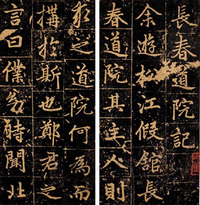 長春道院記
余遊松江假館長
春道院其主人則
之道院何為而
搆於斯也鄭君之
言曰僕蚤時聞北